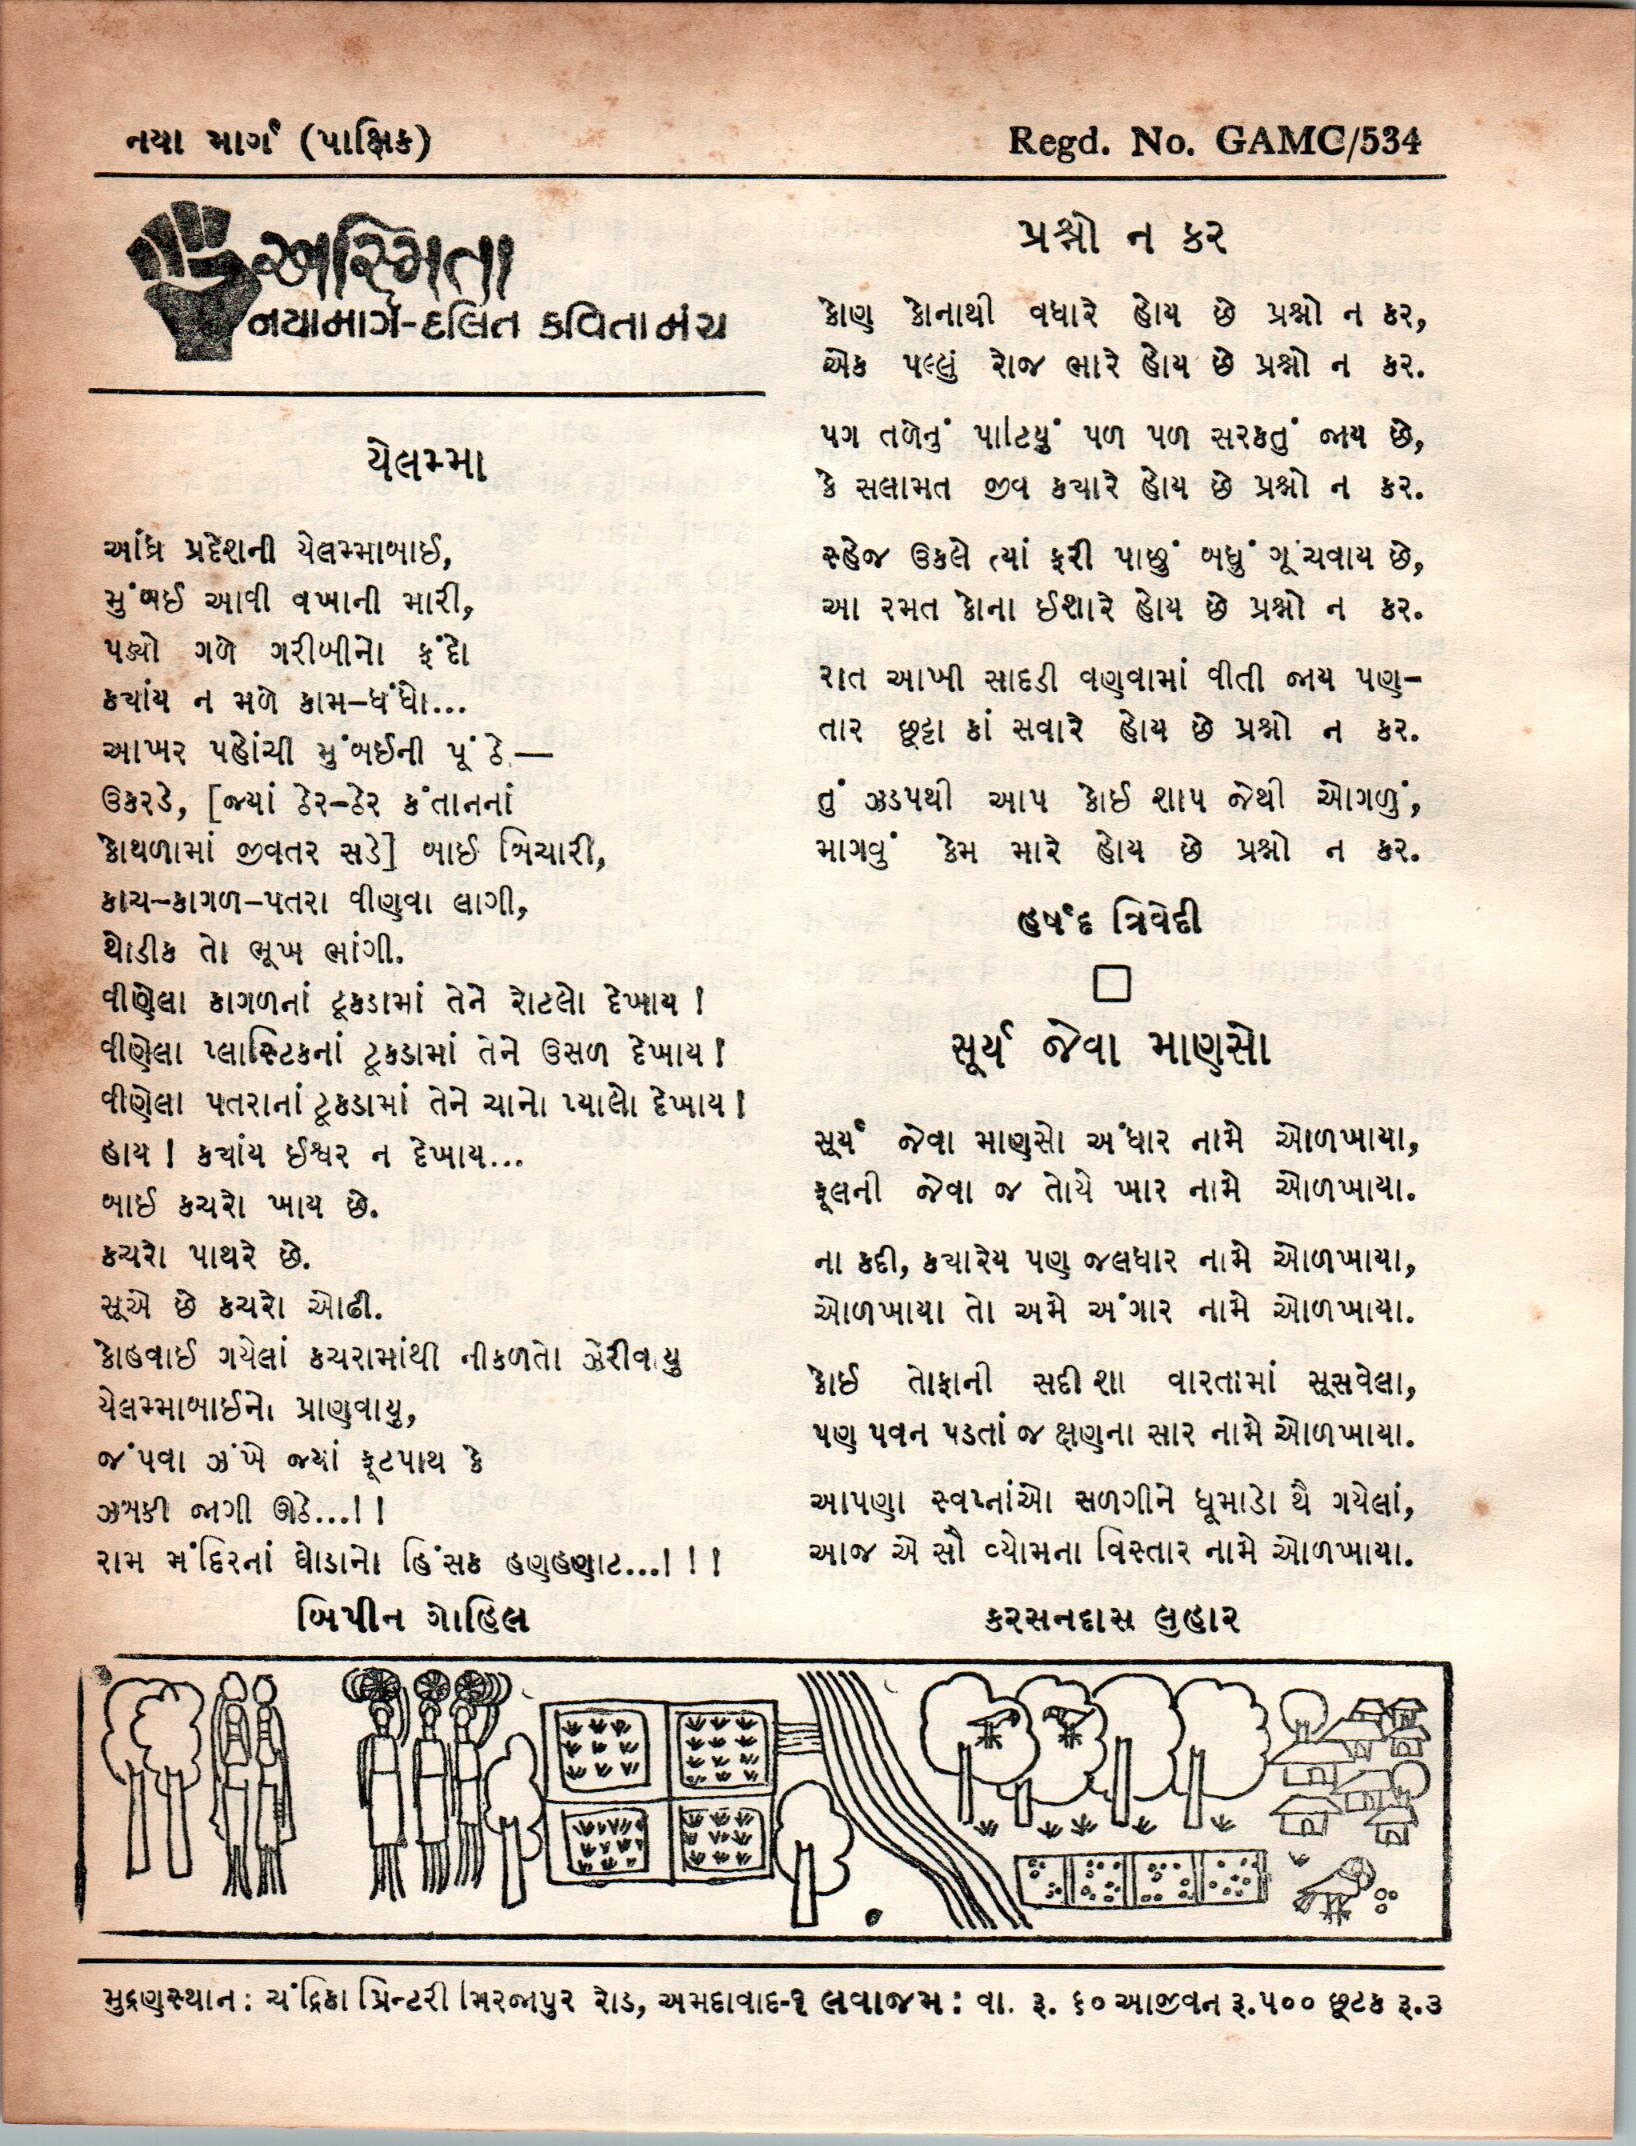 નયા માર્ગ (પાક્ષિક)
Regd. No. GAMC/534
અસ્મિતા
નયામાર્ગ-દલિત કવિતા મંચ
યેલમ્મા
આંધ્ર પ્રદેશની યેલમ્માબાઈ,
મુંબઈ આવી વખાની મારી,
પડ્યો ગળે ગરીબીનો ફંદો
કયાંય ન મળે કામ-ધંધો...
આખર પહોંચી મુંબઈની પૂંઠે—
ઉકરડે, [જ્યાં ઠેર-ઠેર કંતાનનાં
કોથળામાં જીવતર સડે] બાઈ બિચારી,
કાચ-કાગળ-પતરા વીણવા લાગી,
થોડીક તો ભૂખ ભાંગી.
વીણેલા કાગળનાં ટૂકડામાં તેને રોટલો દેખાય !
વીણેલા પ્લાસ્ટિકનાં ટૂકડામાં તેને ઉસળ દેખાય !
વીણેલા પતરાનાં ટૂકડામાં તેને ચાનો પ્યાલો દેખાય !
હાય ! કયાંય ઈશ્વર ન દેખાય...
બાઈ કચરો ખાય છે.
કચરો પાથરે છે.
સૂએ છે કચરો ઓઢી.
કોહવાઈ ગયેલાં કચરામાંથી નીકળતો ઝેરીવાયુ
યેલમ્માબાઈનો પ્રાણવાયુ,
જંપવા ઝંખે જ્યાં ફૂટપાથ કે
ઝબકી જાગી ઊઠે...!!
રામ મંદિરનાં ઘોડાનો હિંસક હણહણાટ...!!!
બિપીન ગોહિલ
પ્રશ્નો ન કર
કોણ કોનાથી વધારે હોય છે પ્રશ્નો ન કર,
એક પલ્લું રોજ ભારે હોય છે પ્રશ્નો ન કર.
પગ તળેનું પાટિયું પળ પળ સરકતું જાય છે,
કે સલામત જીવ કયારે હોય છે પ્રશ્નો ન કર.
સ્હેજ ઉકલે ત્યાં ફરી પાછું બધું ગૂંચવાય છે,
આ રમત કોના ઈશારે હોય છે પ્રશ્નો ન કર.
રાત આખી સાદડી વણવામાં વીતી જાય પણ-
તાર છૂટ્ટા કાં સવારે હોય છે પ્રશ્નો ન કર.
તું ઝડપથી આપ કોઈ શાપ જેથી ઓગળું,
માગવું કેમ મારે હોય છે પ્રશ્નો ન કર.
હર્ષદ ત્રિવેદી
સૂર્ય જેવા માણસો
સૂર્ય જેવા માણસો અંધાર નામે ઓળખાયા,
ફૂલની જેવા જ તોયે ખાર નામે ઓળખાયા.
ના કદી, કયારેય પણ જલધાર નામે ઓળખાયા,
ઓળખાયા તો અમે અંગાર નામે ઓળખાયા.
કોઈ તોફાની સદી શા વારતામાં સૂસવેલા,
પણ પવન પડતાં જ ક્ષણના સાર નામે ઓળખાયા.
આપણા સ્વપ્નાંઓ સળગીને ધૂમાડો થૈ ગયેલાં,
આજ એ સૌ વ્યોમના વિસ્તાર નામે ઓળખાયા.
કરસનદાસ લુહાર
મુદ્રણસ્થાન: ચંદ્રિકા પ્રિન્ટરી મિરજાપુર રોડ, અમદાવાદ-૧ લવાજમ : વા. રૂ. ૬૦ આજીવન રૂ.૫૦૦ છૂટક રૂ.૩